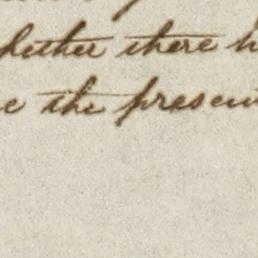 whether there h
e the presen